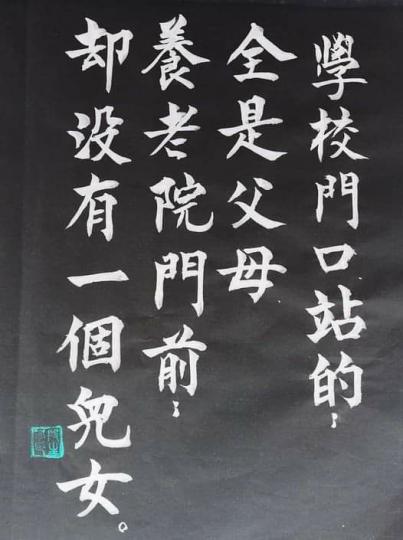 學校門口站的：
全是父母
養老院門前：
却没有一個兒女。